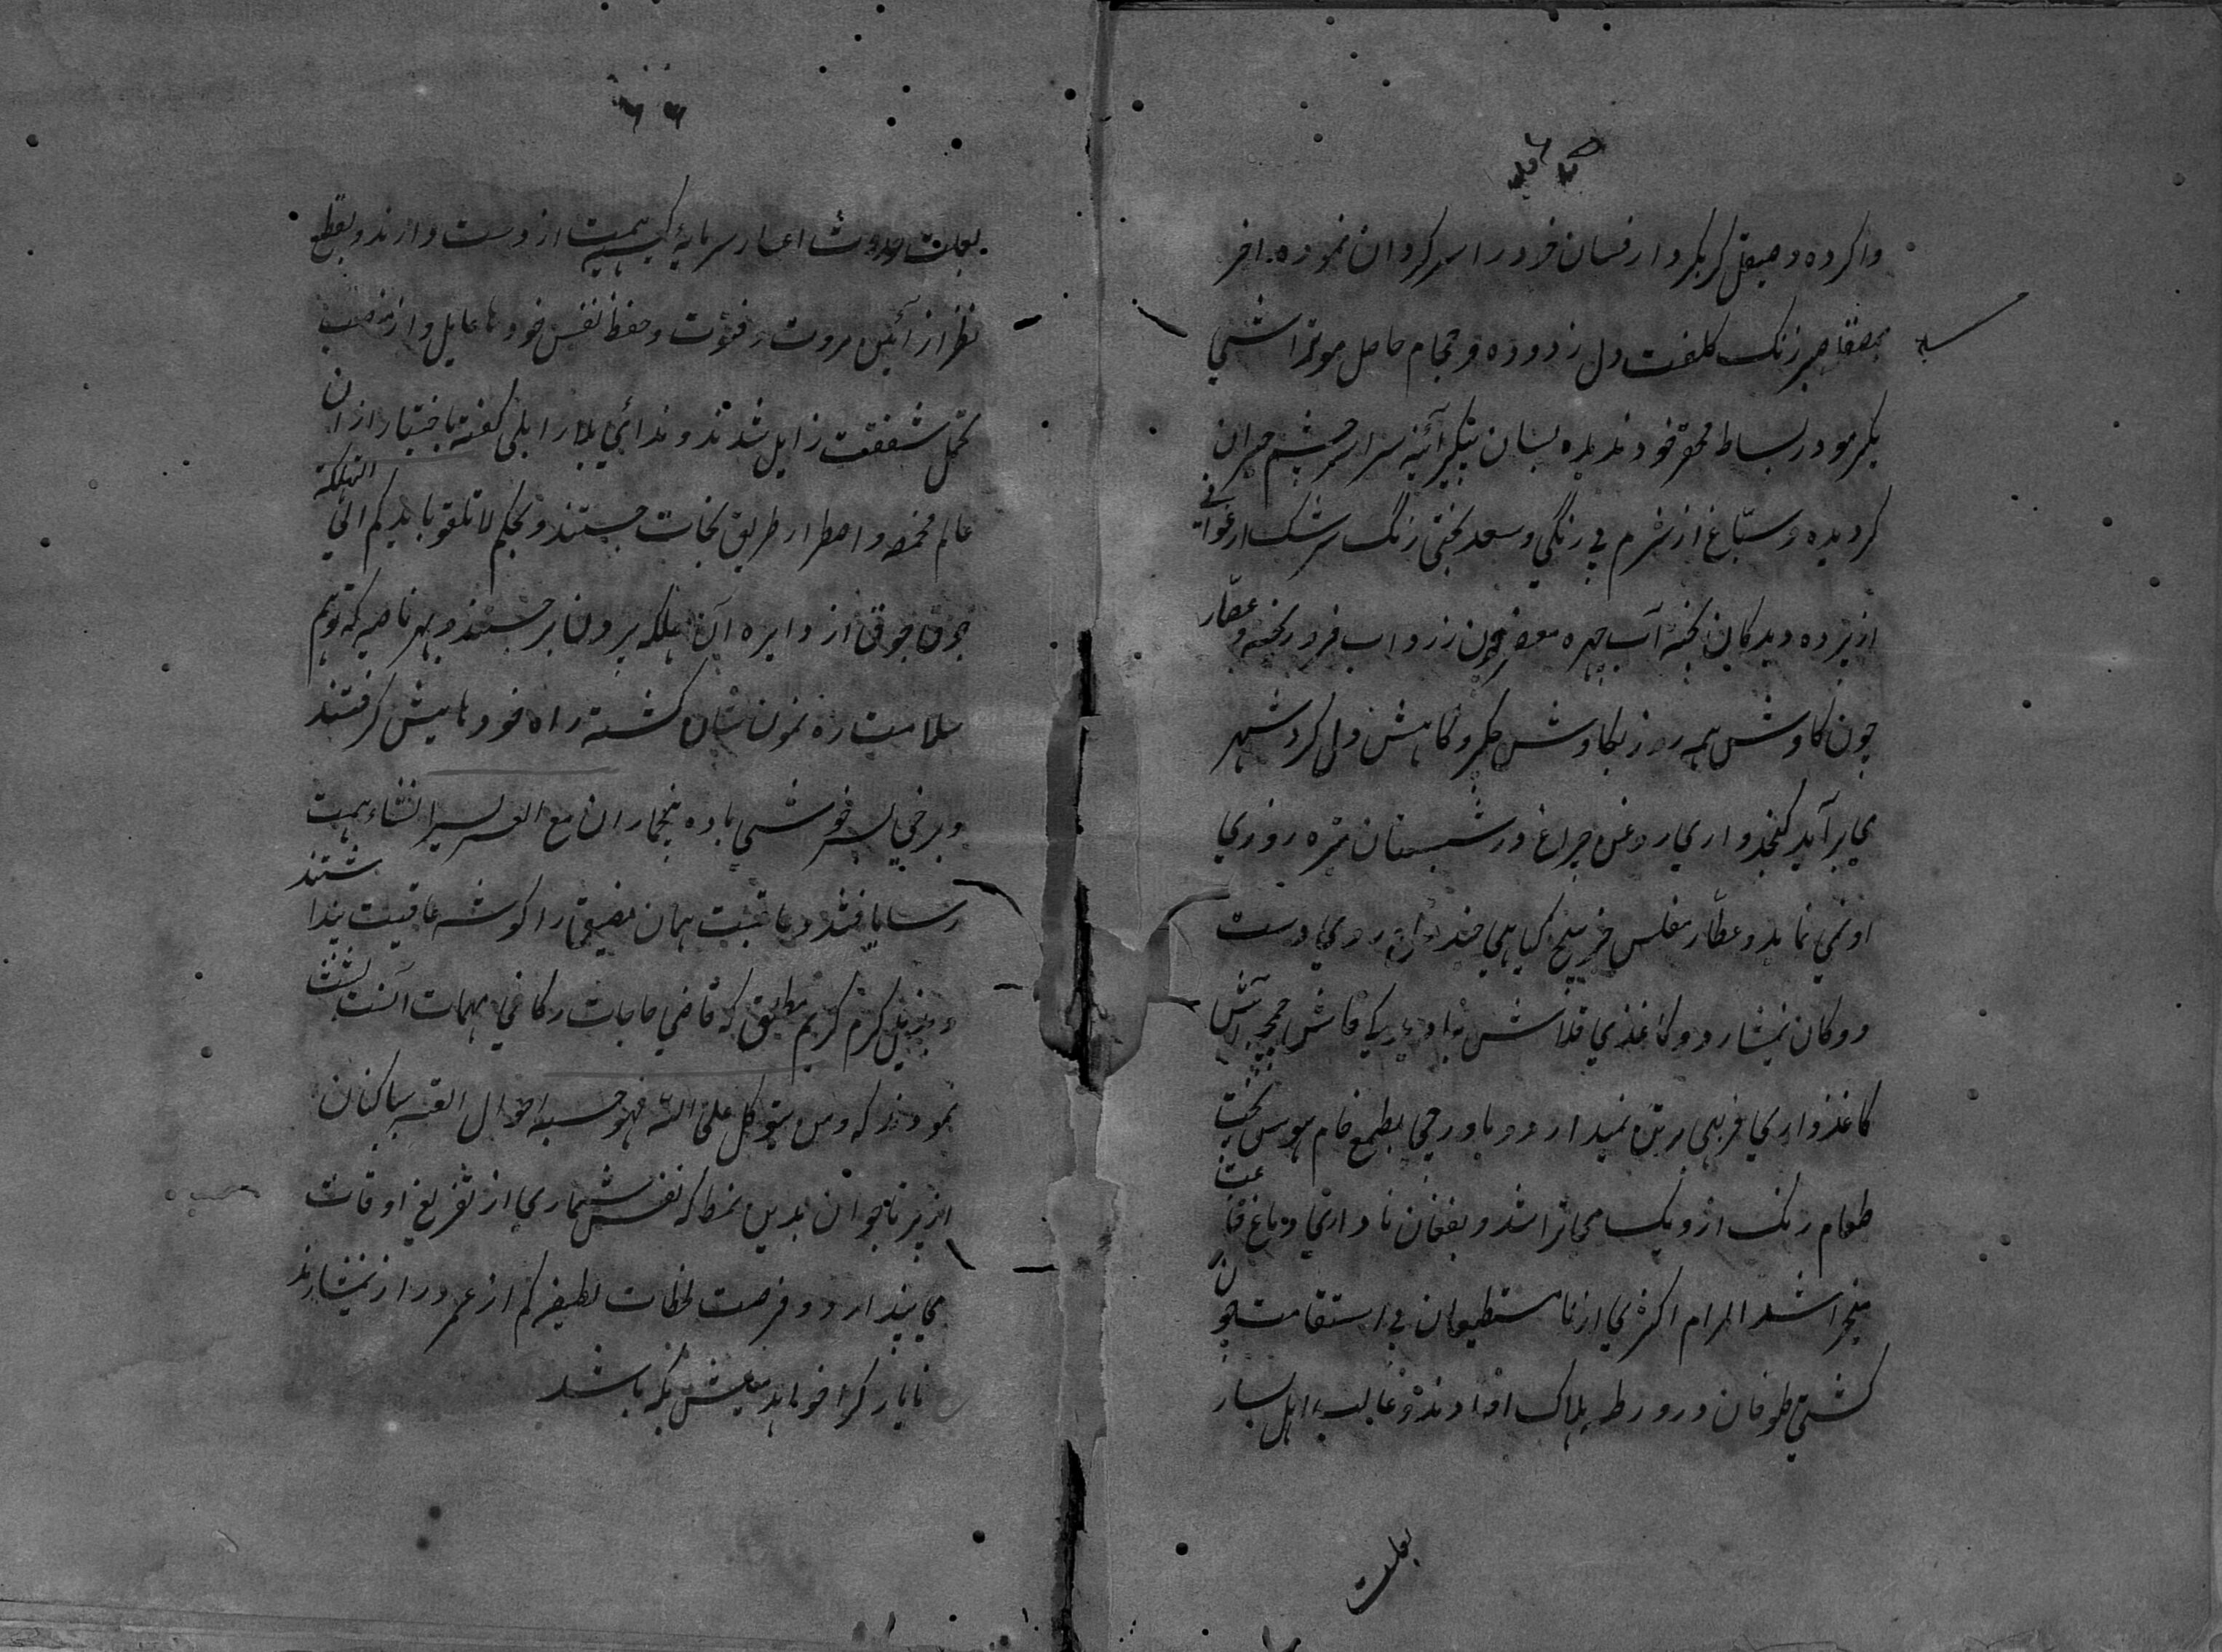 واکرده و صیقل گر بکردار فسان خود را سرکردان نموده اخر
بمصقله صبر زنک کلفت دل زدوده و حجام حاصل موتراشی
یکمر مو در بساط محقر خود ندیده بسان پیکر آئینه سراسر چشم حیران
کردیده و صباغ از شرم بی رنگی و سعد بختی رنگ سرشک ارغوانی
از پرده دیدکان پخته آب چهره معصفر چون زرداب فرو ریخته و عصار
چون کاوش همه روز بکاوش جکر و کاهش دل کرد شهر
می برآید کنجدواری روغن چراغ در شبستان تیره روزی
او نمی نماید و عطار مفلس جز بیخ کیاهی چند ازان روی دست
دوکان نیشارد و کاغذی قلاش
کاغذواری فربهی بر تن نمیدارد و باورچی بطمع خام هوس پخت
طعام رنک از دیک می تراشد و بفغان ناداری دماغ قناعت
میخراشد المرام اکثری از نامستطیعان بی استقامت چون
کشتی طوفان در ورطه هلاک افتادند و غالب اهل یسار
بعلت
بعلت حدوث اعسار سرمایه کیسه همت از دست دارند و بقطع
نظر از آئین مروت و فتوت و حفظ نفس خودها عایل و از منصب
تحمل شفقت زایل شدند و ندائی بلا را بلی کفته باختیار از ان
عالم مخمصه و اضطرار طریق نجات جستند و بحکم لا تلقوا بایدیکم الی التهلکه
جوق جوق از دایره آن هلکه برون برجستند و بهر ناحیه که توهم
سلامت رهنمون شان کشته راه خودها پیش کرفتند
و برخی بسرخوشی باده بیخمار ان مع العسر یسرا نشاء همت
رسا یافتند و عاقبت همان مضیق را کوشه عافیت پنداشتند
و بذیل کرم کریم مطلق که قاضی حاجات و کافی مهمات آنست تشبث
نمودند که و من یتوکل علی الله فهو حسبه احوال القصه ساکنان
از پیر تا جوان بدین نمط که نفس شماری از تفریغ اوقات
می پندارد و فرصت لحظات لطیفه کم از عمر دراز نیشارند
تا یار کرا خواهد و میلش بکه باشد